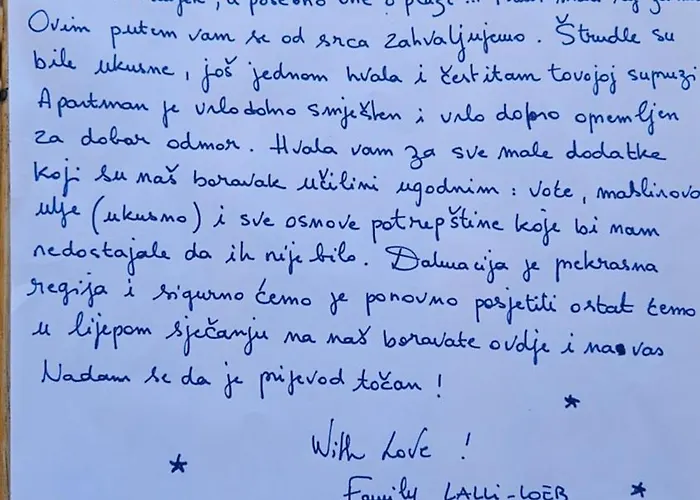 Ovim putem vam se od srca zahvaljujemo. Štrudle su
bile ukusne, još jednom hvala i čestitam tovojoj supruzi
Apartman je vrlo dobro smješten i vrlo dobro opremljen
za dobar odmor. Hvala vam za sve male dodatke
koji su naš boravak učilini ugodnim: voće, maslinovo
ulje (ukusno) i sve osnove potrepštine koje bi nam
nedostajale da ih nije bilo. Dalmacija je prekrasna
regija i sigurno ćemo je ponovno posjetiti ostat ćemo
u lijepom sječanju na naš boravate ovdje i na vas
Nadam se da je prijevod točan!
With Love!
Family LALLI-LOEB